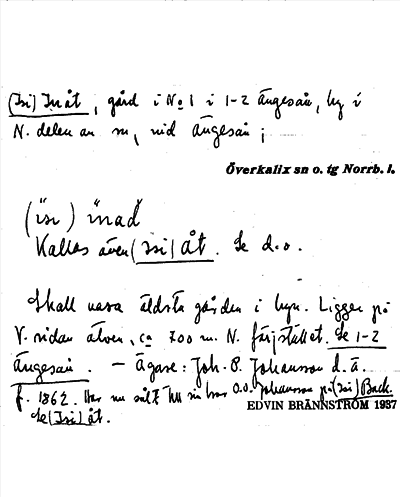 (Isi) Inåt, gård i No 1 i 1-2 Ängesån, by i
N. delen av sn, vid Ängesån;
Överkalix sn o. tg Norrb. l.
(ïsi) ïnad
Kallas även (Isi) åt. Se d.o.
Skall vara äldsta gården i byn. Ligger på
V. sidan älven, ca 700 m. N. färjstället. Se 1-2
Ängesån. — Ägare: Joh. P. Johansson d.ä.
f. 1862. Har nu sålt till sin bror O.O. Johansson på (Isi) Back.
EDVIN BRÄNNSTRÖM 1937
Se (Isi) åt.